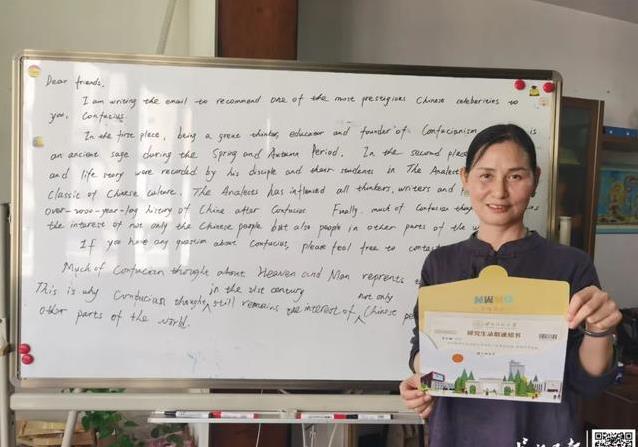 Dear friends,
I am writing the email to recommend one of the most prestigious Chinese celebrities to
you, Confucius.
In the first place, being a great thinker, educator and founder of Confucianism is
an ancient sage during the Spring and Autumn Period. In the second place
and life story were recorded by his disciple and their students in The Analects
Classic of Chinese culture. The Analects has influned all thinkers, writers and
over-2000-year-log history of China after Confucius Finally, much of Confucian
the interest of not only the Chinese people but also people in other parts of the
If you have any question about Confucius, please feel free to contact
Much of Confucian thought about Heaven and Man reprents
in the 21st century not only
This is why Confucian thought still remains the interest of Chinese
other parts of the world.
研究生录取通知书